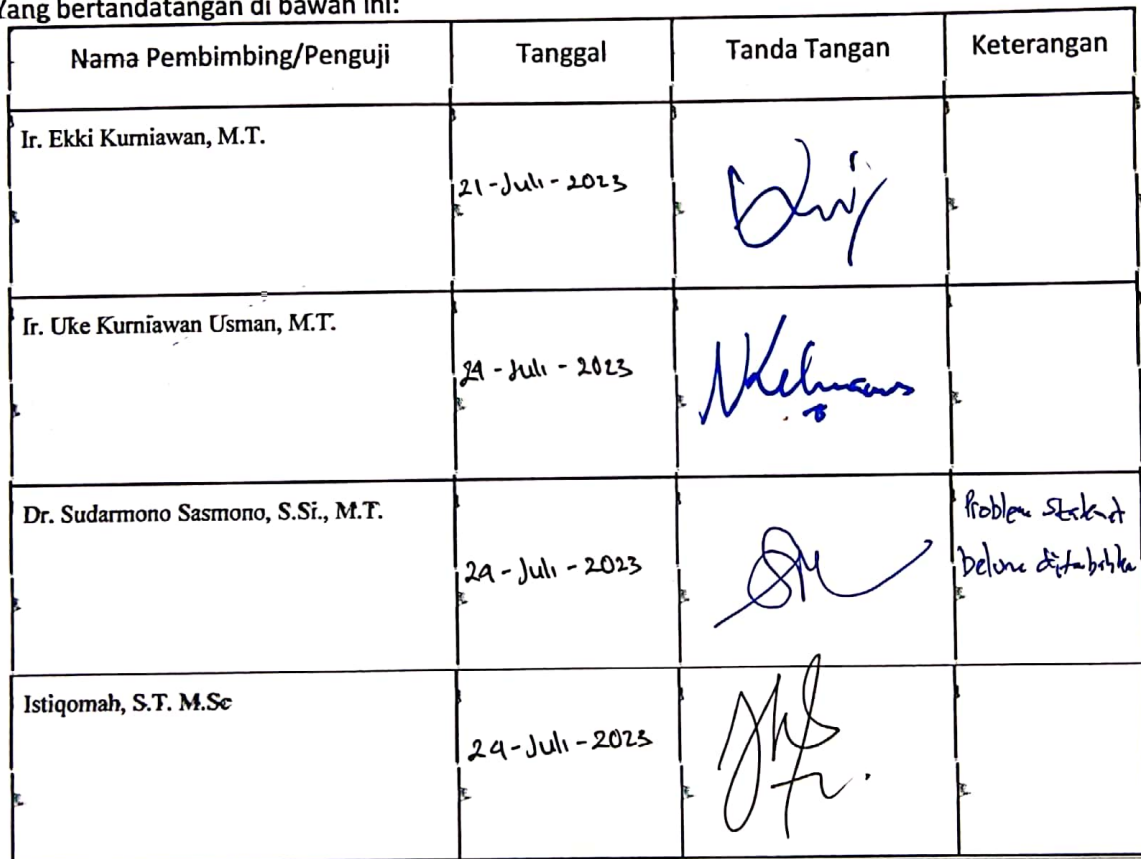 Yang bertandatangan di bawah ini:
Nama Pembimbing/Penguji Tanggal Tanda Tangan Keterangan
Ir. Ekki Kurniawan, M.T.
21-Juli-2023
Ir. Uke Kurniawan Usman, M.T.
24-Juli-2023
Dr. Sudarmono Sasmono, S.Si., M.T.
Problem
belum
24-Juli-2023
Istiqomah, S.T. M.Sc
24-Juli-2023